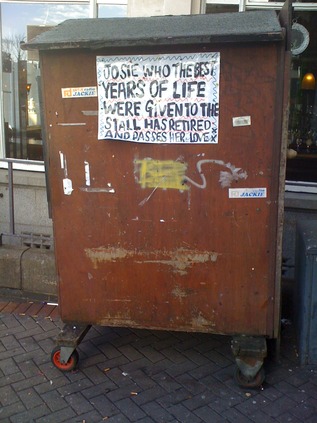 JOSIE WHO THE BEST
YEARS OF LIFE
WERE GIVEN TO THE
STALL HAS RETIRED
AND PASSES HER LOVE X
JACKIE
JACKIE